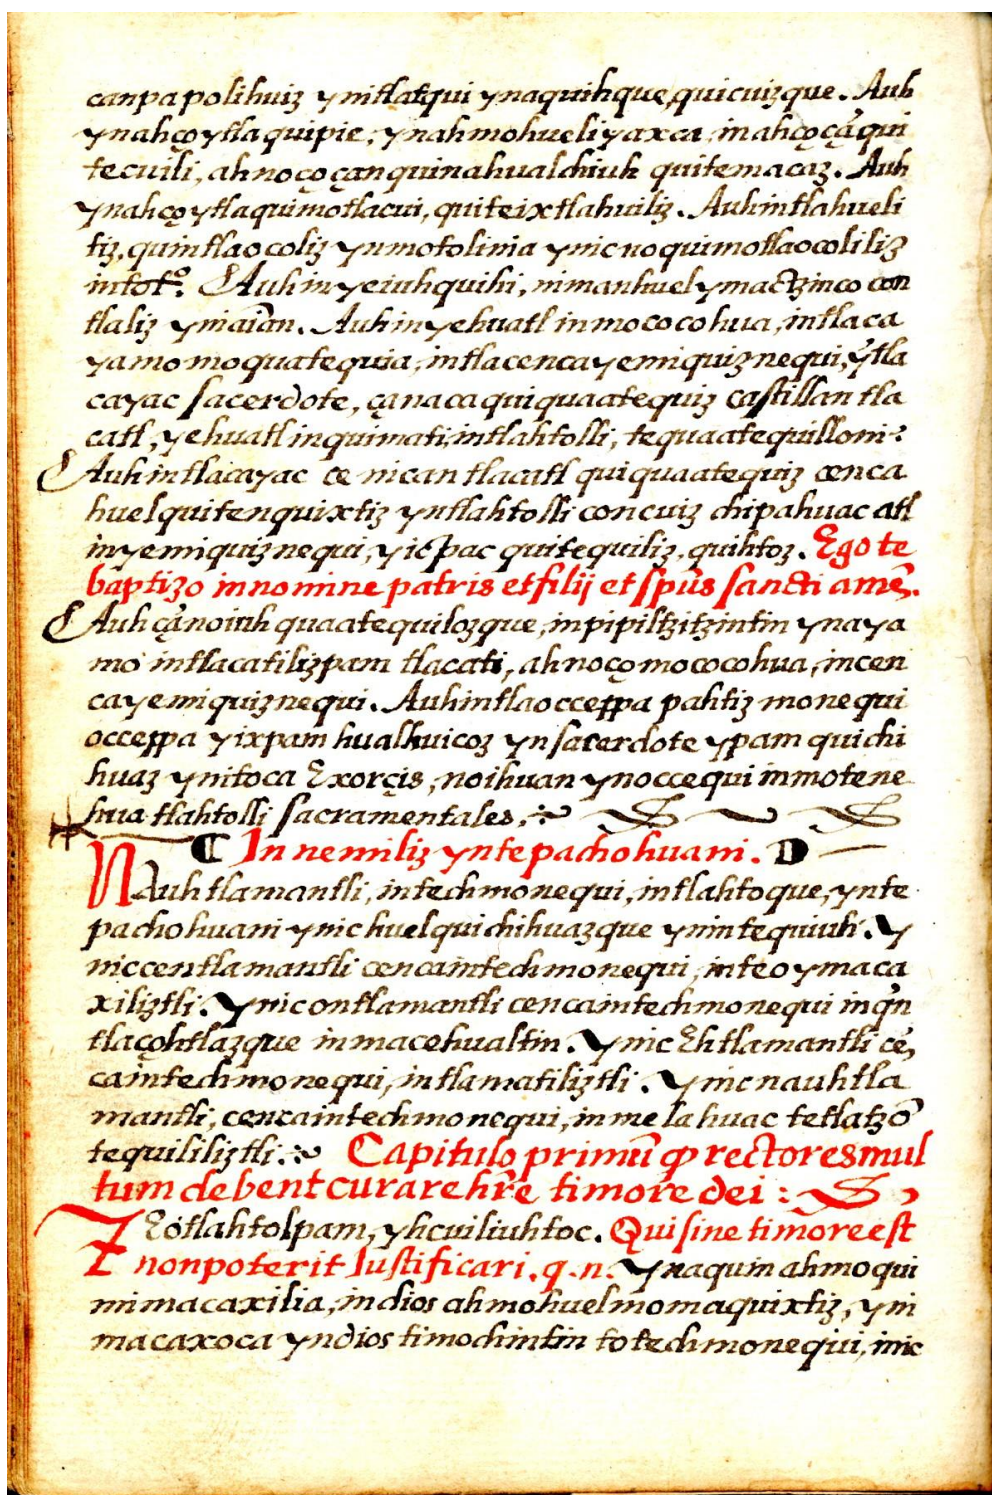 canpa polihuiz yn itlatqui yn aquihque, quicuizque. Auh
yn ahço ytla quipie, yn ahmo huel iyaxca, in ahço çã qui
tecuili, ahnoço çan quinahualchiuh quitemacaz. Auh
yn ahço ytla quimotlacui, quiteixtlahuiliz. Auh intlahueli
tiz, quintlaocoliz yn motolinia ynic no quimotlaocoliliz
in tot.º Auh in ye iuhqui hi, in manhuel ymactzinco con
tlaliz yniaĩan. Auh in yehuatl in mococohua, intlaca
yamo moquatequia, intlacenca ye miquiznequi, ỹtla
cayac sacerdote, çan aca quiquaatequiz castillan tla
catl, yehuatl in quimati, in tlahtolli, tequaatequilloni.
Auh intlacayac ce nican tlacatl quiquaatequiz cenca
huel quitenquixtiz yn tlahtolli concuiz chipahuac atl
in ye miquiznequi, yicpac quitequiliz, quihtoz. Ego te
baptizo in nomine patris et filij et spũs sancti amẽ.
Auh çã no iuh quaatequilozque, in pipiltzitzintin yn aya
mo intlacatilizpam tlacati, ahnoço mococohua, in cen
ca ye miquiznequi. Auh intla occeppa pahtiz monequi
occeppa yixpam hualhuicoz yn sacerdote ypam quichi
huaz yn itoca Exorçis, no ihuan yn occequi in motene
hua tlahtolli sacramentales.
In nemiliz yn tepachohuani.
Nauhtlamantli, intech monequi, in tlahtoque, yn te
pachohuani ynic huel quichihuazque yn intequiuh. Y
nic centlamantli cenca intech monequi, in teoymaca
xiliztli. Ynic ontlamantli cenca intech monequi in qn̄
tlaçohtlazque in macehualtin. Ynic Ehtlamantli cẽ
ca intech monequi, in tlamatiliztli. Ynic nauhtla
mantli, cenca intech monequi, in melahuac tetlatzõ
tequililiztli. Capitulo primũ ꝙ rectores mul
tum debent curare hr̃e timore dei:
Teotlahtolpam, yhcuiliuhtoc. Qui sine timore est
non poterit Iustificari. q. n. Yn aquin ahmo qui
mimacaxilia, in dios ahmo huel momaquixtiz, yn i
macaxoca yn dios timochintin totech monequi, inic